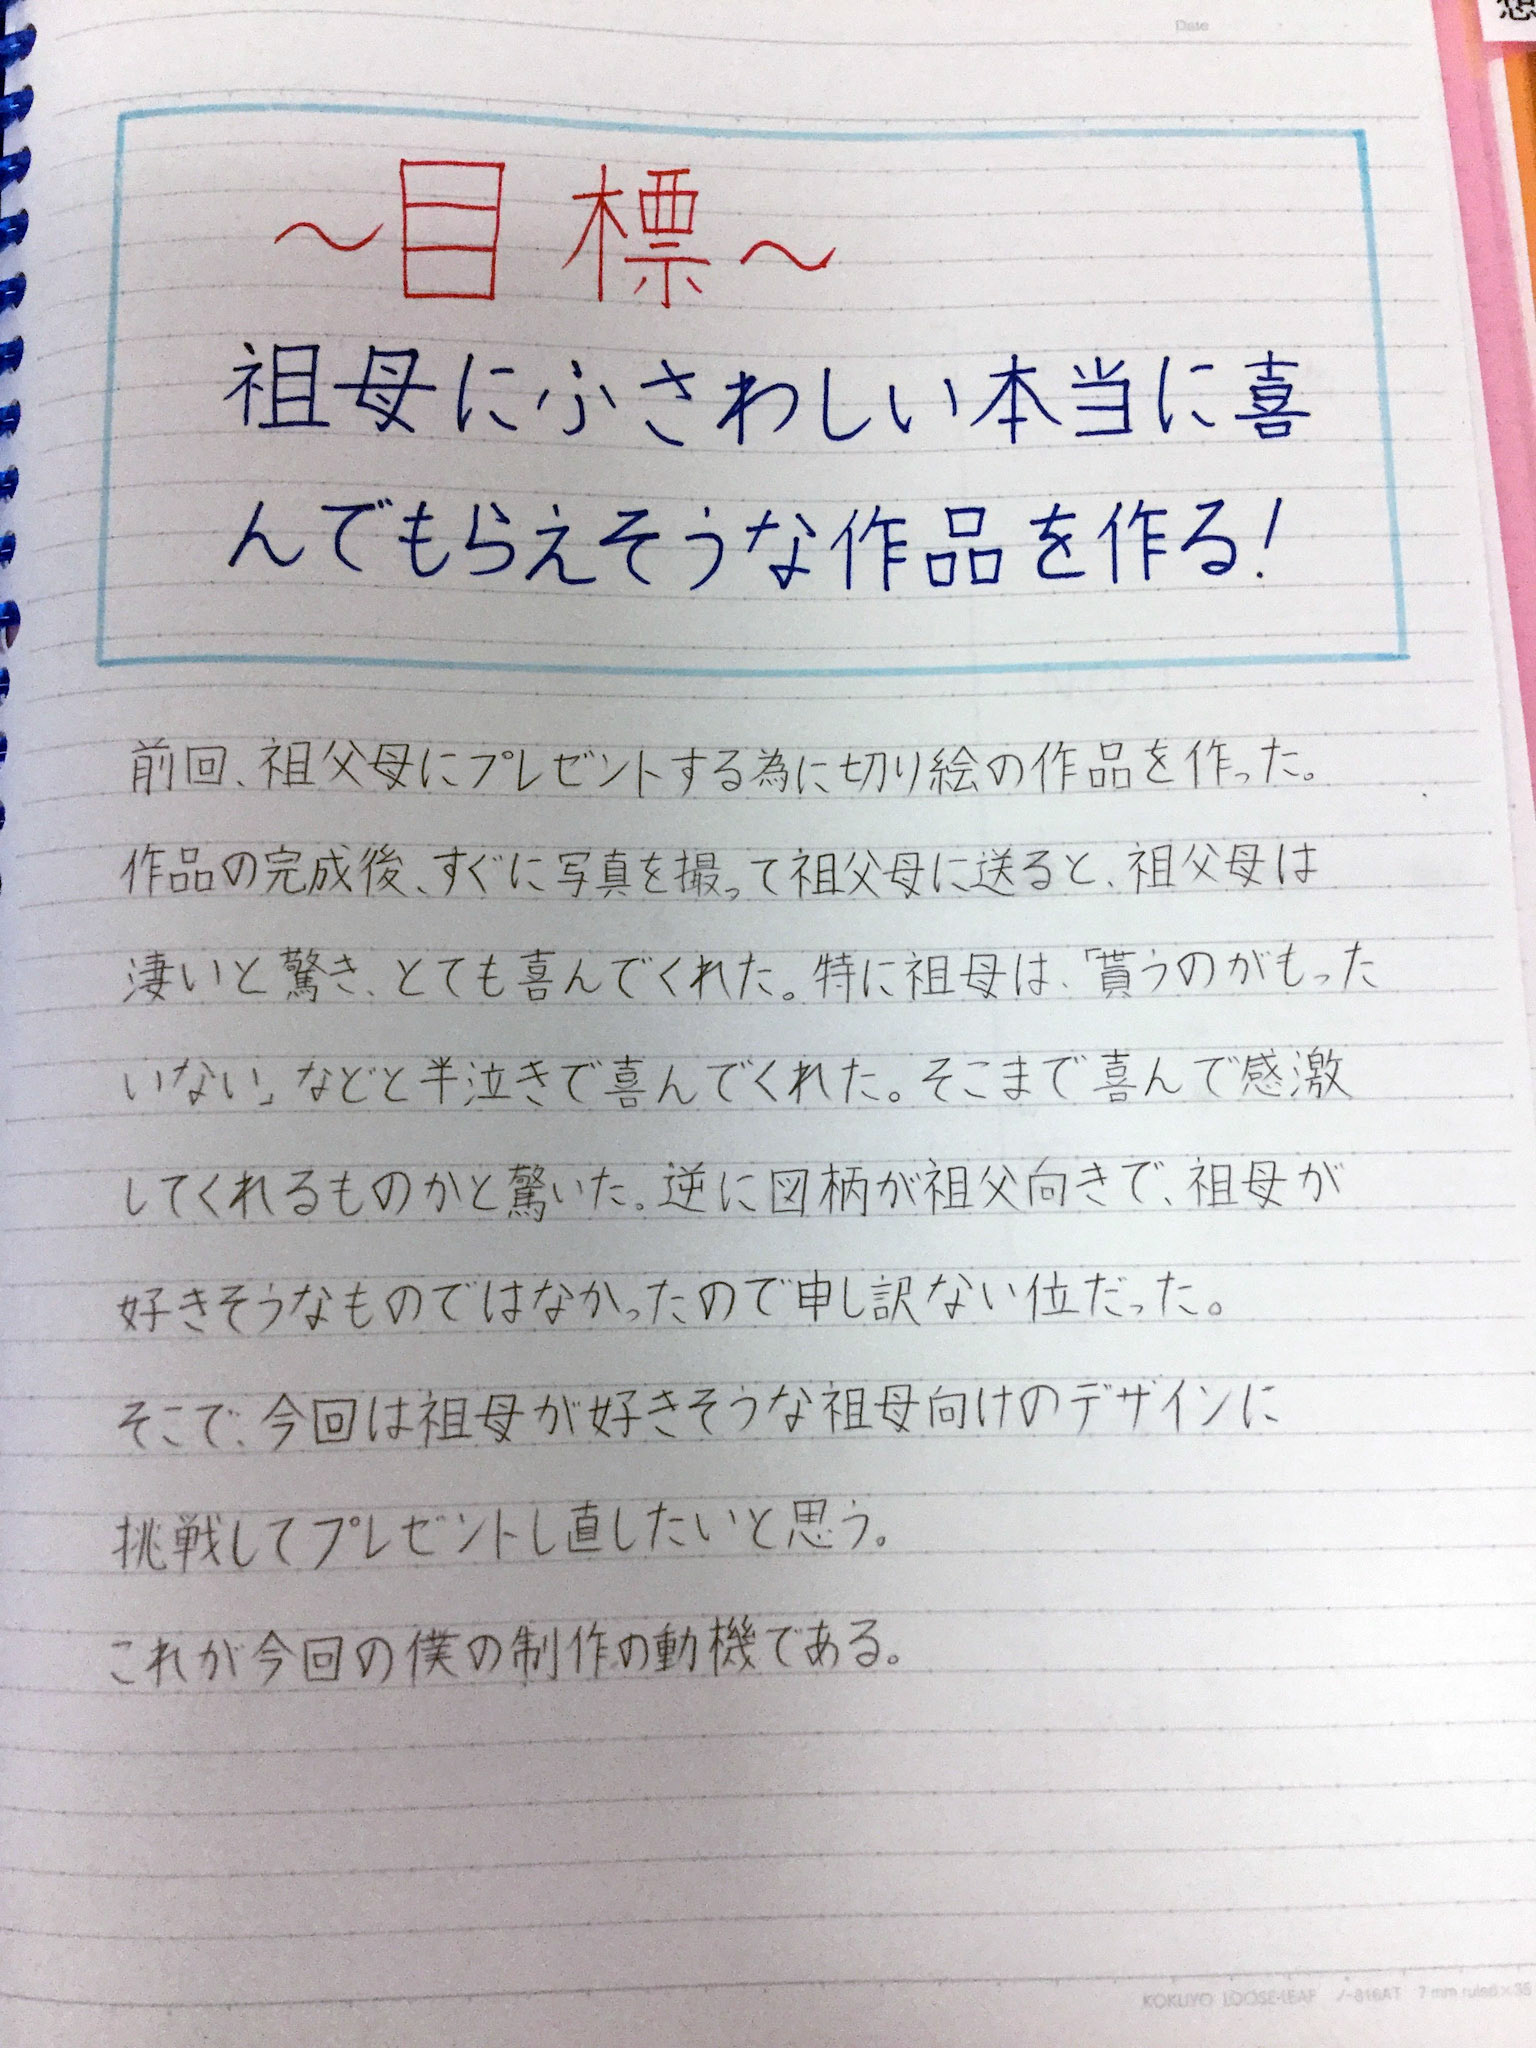 Date
想
～目標～
祖母にふさわしい本当に喜
んでもらえそうな作品を作る!
前回、祖父母にプレゼントする為に切り絵の作品を作った。
作品の完成後、すぐに写真を撮って祖父母に送ると、祖父母は
凄いと驚き、とても喜んでくれた。特に祖母は、「貰うのがもった
いない」などと半泣きで喜んでくれた。そこまで喜んで感激
してくれるものかと驚いた。逆に図柄が祖父向きで、祖母が
好きそうなものではなかったので申し訳ない位だった。
そこで、今回は祖母が好きそうな祖母向けのデザインに
挑戦してプレゼントし直したいと思う。
これが今回の僕の制作の動機である。
KOKUYO LOOSE-LEAF ノ-816AT 7 mm ruled×35